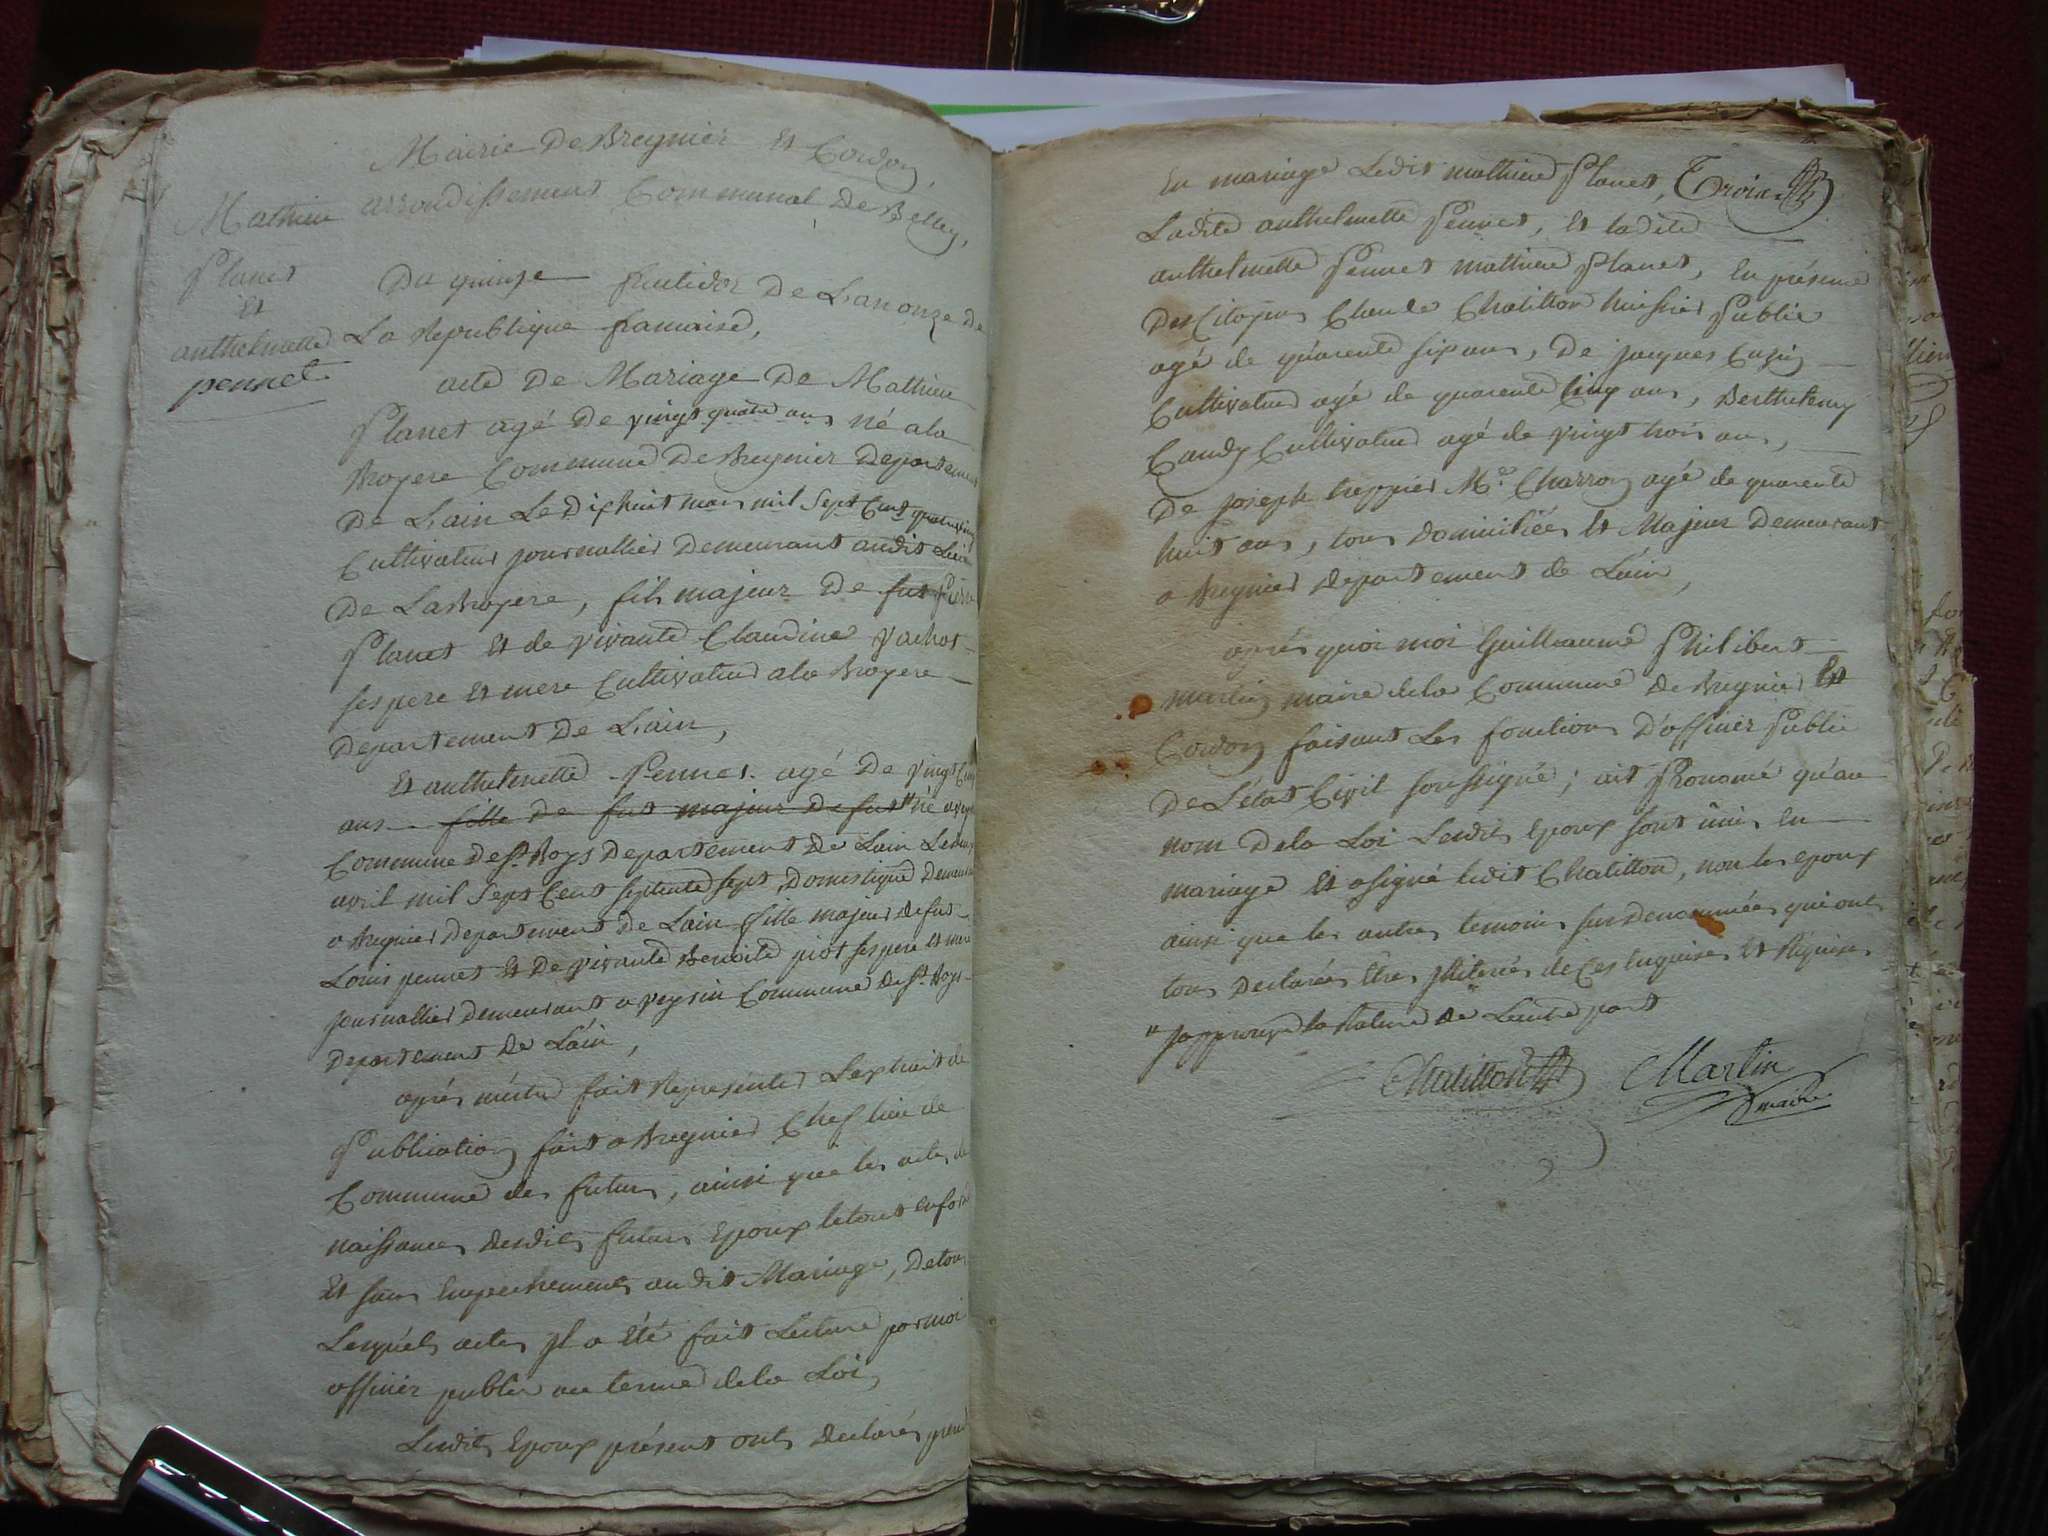 Mairie De Bregnier Et Cordon
arrondissement Communal De Belley,
Mathieu
Planet
Et
anthelmette
pennet
Du quinze fructidor De Lan onze de
La Republique francaise,
acte De Mariage De Mathieu
Planet agé De vingt quatre ans né a la
Bruyere Commune De Bregnier Departement
De L'ain Le Dixhuit mars mil Sept Cent quatrevingt
Cultivateur journallier Demeurant audit Lieu
De La Bruyere, fils majeur De fut Pierre
Planet Et de vivante Claudine Vachot
ses pere Et mere Cultivateur a la Bruyere
Departement De L'ain,
Et anthelmette Pennet agé De vingt Cinq
ans fille de fut majeur De fut " né a
Commune De St Boys Departement De Lain Le
avril mil Sept Cent Septente Sept, Domestique Demeurant
a Bregnier Departement De Lain fille majeur de fut
Louis pennet Et De vivante Benoite piot ses pere Et mere
journallier Demeurant a veysin Commune De St Boys
Departement De L'áin,
aprés m'étre fait Representer Lextrait de
Publication fait a Bregnier Chef lieu de
Commune des futurs, ainsi que les actes de
naissances Desdits futurs Epoux le tout en forme
Et sans Empechements audit Mariage, De tous
Lesquels actes Jl a Eté fait Lecture par moi
officier public au terme de la Loi,
Lesdits Epoux présent ont Declarés prendre
En mariage Ledit mathieu Planet,
Ladite anthelmette Pennet, Et ladite
anthelmette Pennet mathieu Planet, En présence
Des Citoyens Claude Chatillon huissier Public
agé de quarente six ans, De jacques Cuzin
Cultivateur agé de quarente Cinq ans, Berthelemy
Candy Cultivateur agé de vingt trois ans,
De joseph treppier Me Charron agé de quarente
huit ans, tous Domiciliés Et Majeur Demeurant
a Bregnier Departement de L'ain,
aprés quoi moi Guilleaume Philibert
martin maire de la Commune De Bregnier Et
Cordon faisant Les fonctions D'officier Public
De L'état Civil soussigné; ait Prononcé qu'au
nom De la Loi Lesdits Epoux sont ûnis En
mariage Et a signé ledit Chatillon, non les epoux
ainsi que les autres temoins sus denommées qui ont
tous Declarés Être Jlliterés de Ces Enquises Et Requises
" J'approuve la Rature De L'autre part
Chatillon Martin
maire